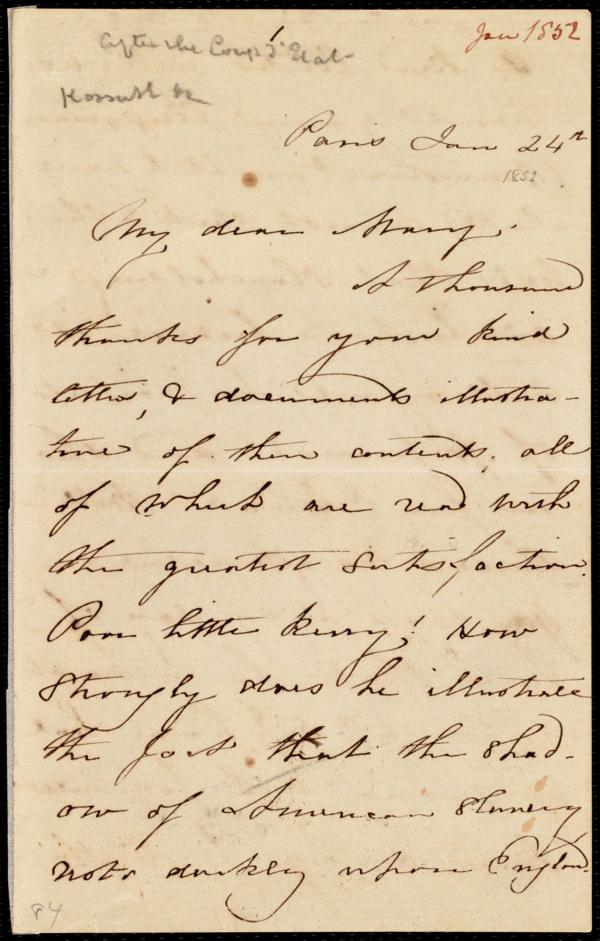 After the Coup d'Etat -
Jan 1852
Kossuth &c
Paris Jan 24th
1852
My dear Mary.
A thousand
thanks for your kind
letter, & documents illustra-
tive of their contents, all
of which are read with
the greatest satisfaction.
Poor little Kerry! How
strongly does he illustrate
the fact that the shad-
ow of American slavery
rests darkly upon England.
84